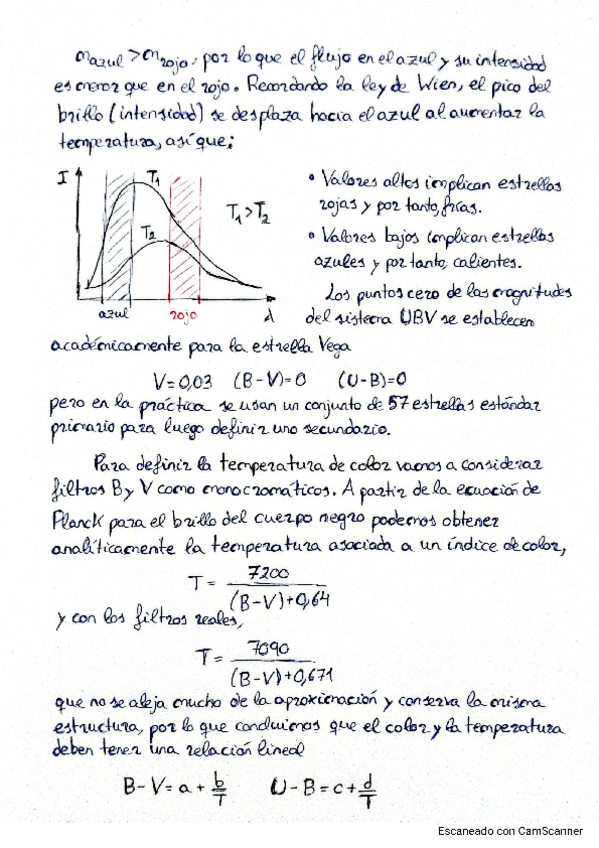 m azul > m rojo, por lo que el flujo en el azul y su intensidad
es menor que en el rojo. Recordando la ley de Wien, el pico del
brillo (intensidad) se desplaza hacia el azul al aumentar la
temperatura, así que:
I
T₁
T₂
T₁ > T₂
azul
rojo
λ
• Valores altos implican estrellas
rojas y por tanto, frías.
• Valores bajos implican estrellas
azules y por tanto, calientes.
Los puntos cero de las magnitudes
del sistema UBV se establecen
académicamente para la estrella Vega
V = 0,03 (B-V)=0 (U-B)=0
pero en la práctica se usan un conjunto de 57 estrellas estándar
primario para luego definir uno secundario.
Para definir la temperatura de color vamos a considerar
filtros B y V como monocromáticos. A partir de la ecuación de
Planck para el brillo del cuerpo negro podemos obtener
analíticamente la temperatura asociada a un índice de color,
T = 7200 / (B-V)+0,64
y con los filtros reales,
T = 7090 / (B-V)+0,671
que no se aleja mucho de la aproximación y conserva la misma
estructura, por lo que concluimos que el color y la temperatura
deben tener una relación lineal
B-V = a + b/T U-B = c + d/T
Escaneado con CamScanner